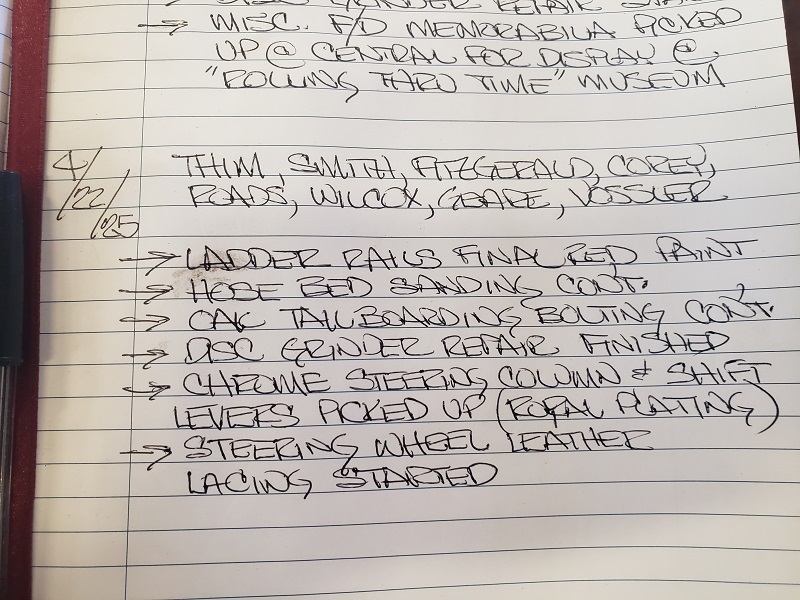 DISC GRINDER REPAIR
→ MISC. F/D MEMORABILIA PICKED
UP @ CENTRAL FOR DISPLAY @
"ROLLING THRU TIME" MUSEUM
4/22/25
THIM, SMITH, FITZGERALD, COREY,
ROADS, WILCOX, GEARE, VOSSLER
→ LADDER RAILS FINAL RED PAINT
→ HOSE BED SANDING CONT.
→ OAK TAILBOARDING BOLTING CONT.
→ DISC GRINDER REPAIR FINISHED
→ CHROME STEERING COLUMN & SHIFT
LEVERS PICKED UP (ROYAL PLATING)
→ STEERING WHEEL LEATHER
LACING STARTED